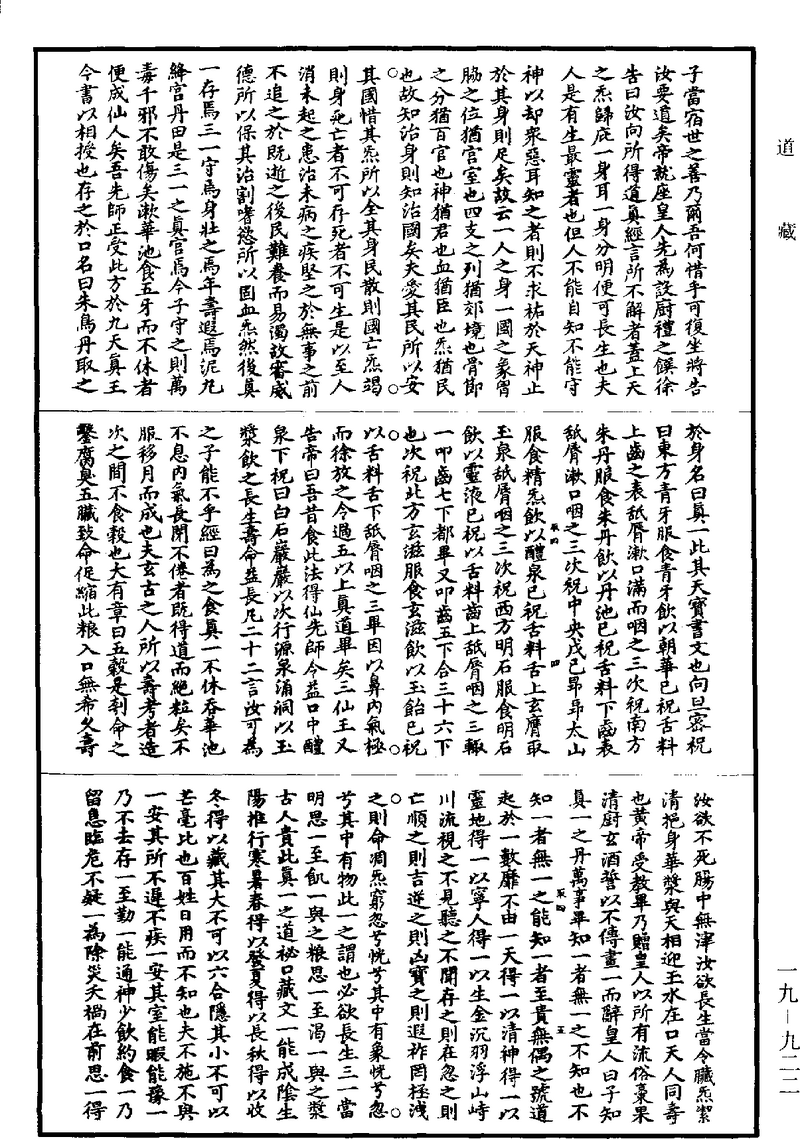 道藏
子當宿世之善乃爾吾何惜乎可復坐將告
汝要道矣帝就座皇人先為設厨禮之饌徐
告曰汝向所得道真經言所不解者蓋上天
之炁歸於一身耳一身分明便可長生也夫
人是有生最靈者也但人不能自知不能守
神以却眾惡耳知之者則不求祐於天神止
於其身則足矣故云一人之身一國之象胷
脇之位猶宮室也四支之列猶郊境也骨節
之分猶百官也神猶君也血猶臣也炁猶民
也故知治身則知治國矣夫愛其民所以安
其國惜其炁所以全其身民散則國亡炁竭
則身死亡者不可存死者不可生是以至人
消未起之患治未病之疾堅之於無事之前
不追之於既逝之後民難養而易濁故審威
德所以保其治割嗜慾所以固血炁然後真
一存焉三一守焉身壯之焉年壽遐焉泥丸
絳宮丹田是三一之真官焉令子守之則萬
毒千邪不敢傷矣漱華池食五牙而不休者
便成仙人矣吾先師正受此方於九天真王
今書以相授也存之於口名曰朱鳥丹取之
於身名曰真一此其天寶書文也向旦密祝
曰東方青牙服食青牙飲以朝華已祝舌料
上齒之表舐脣漱口滿而咽之三次祝南方
朱丹服食朱丹飲以丹池已祝舌料下齒表
舐脣漱口咽之三次祝中央戊己昂昂太山
服食精炁飲以醴泉已祝舌料舌上玄膺取
玉泉舐脣咽之三次祝西方明石服食明石
飲以靈液已祝以舌料齒上舐脣咽之三輙
一叩齒七下都畢又叩齒五下合三十六下
也次祝此方玄滋服食玄滋飲以玉飴已祝
以舌料舌下舐脣咽之三畢因以鼻內氣極
而徐放之令過五以上真道畢矣三仙王又
告帝曰吾昔食此法得仙先師今益口中醴
泉下祝曰白石巖巖以次行源泉涌洞以玉
漿飲之長生壽命益長凡二十二言汝可為
之子能不乎經曰為之食真一不休吞華池
不息內氣長閉不倦者既得道而絕粒矣不
服移月而成也夫玄古之人所以壽考者造
次之間不食穀也大有章曰五穀是刳命之
鑿腐臭五臟致命促縮此粮入口無希久壽
汝欲不死腸中無滓汝欲長生當令臟炁潔
清挹身華漿與天相迎玉水在口天人同壽
也黃帝受教畢乃贈皇人以所有流俗棗果
清厨玄酒誓以不傳畫一而辭皇人曰子知
真一之丹萬事畢知一者無一之不知也不
知一者無一之能知一者至貴無偶之號道
起於一數靡不由一天得一以清神得一以
靈地得一以寧人得一以生金沉羽浮山峙
川流視之不見聽之不聞存之則在忽之則
亡順之則吉逆之則凶寶之則遐祚罔極洩
之則命凋炁窮忽兮恍兮其中有象恍兮忽
兮其中有物此一之謂也必欲長生三一當
明思一至飢一與之粮思一至渴一與之漿
古人貴此真一之道祕口藏文一能成陰生
陽推行寒暑春得以發夏得以長秋得以收
冬得以藏其大不可以六合隱其小不可以
芒毫比也百姓日用而不知也夫不施不與
一安其所不遲不疾一安其室能暇能豫一
乃不去存一至勤一能通神少飲約食一乃
留息臨危不疑一為除災夭禍在前思一得
一九－九二二